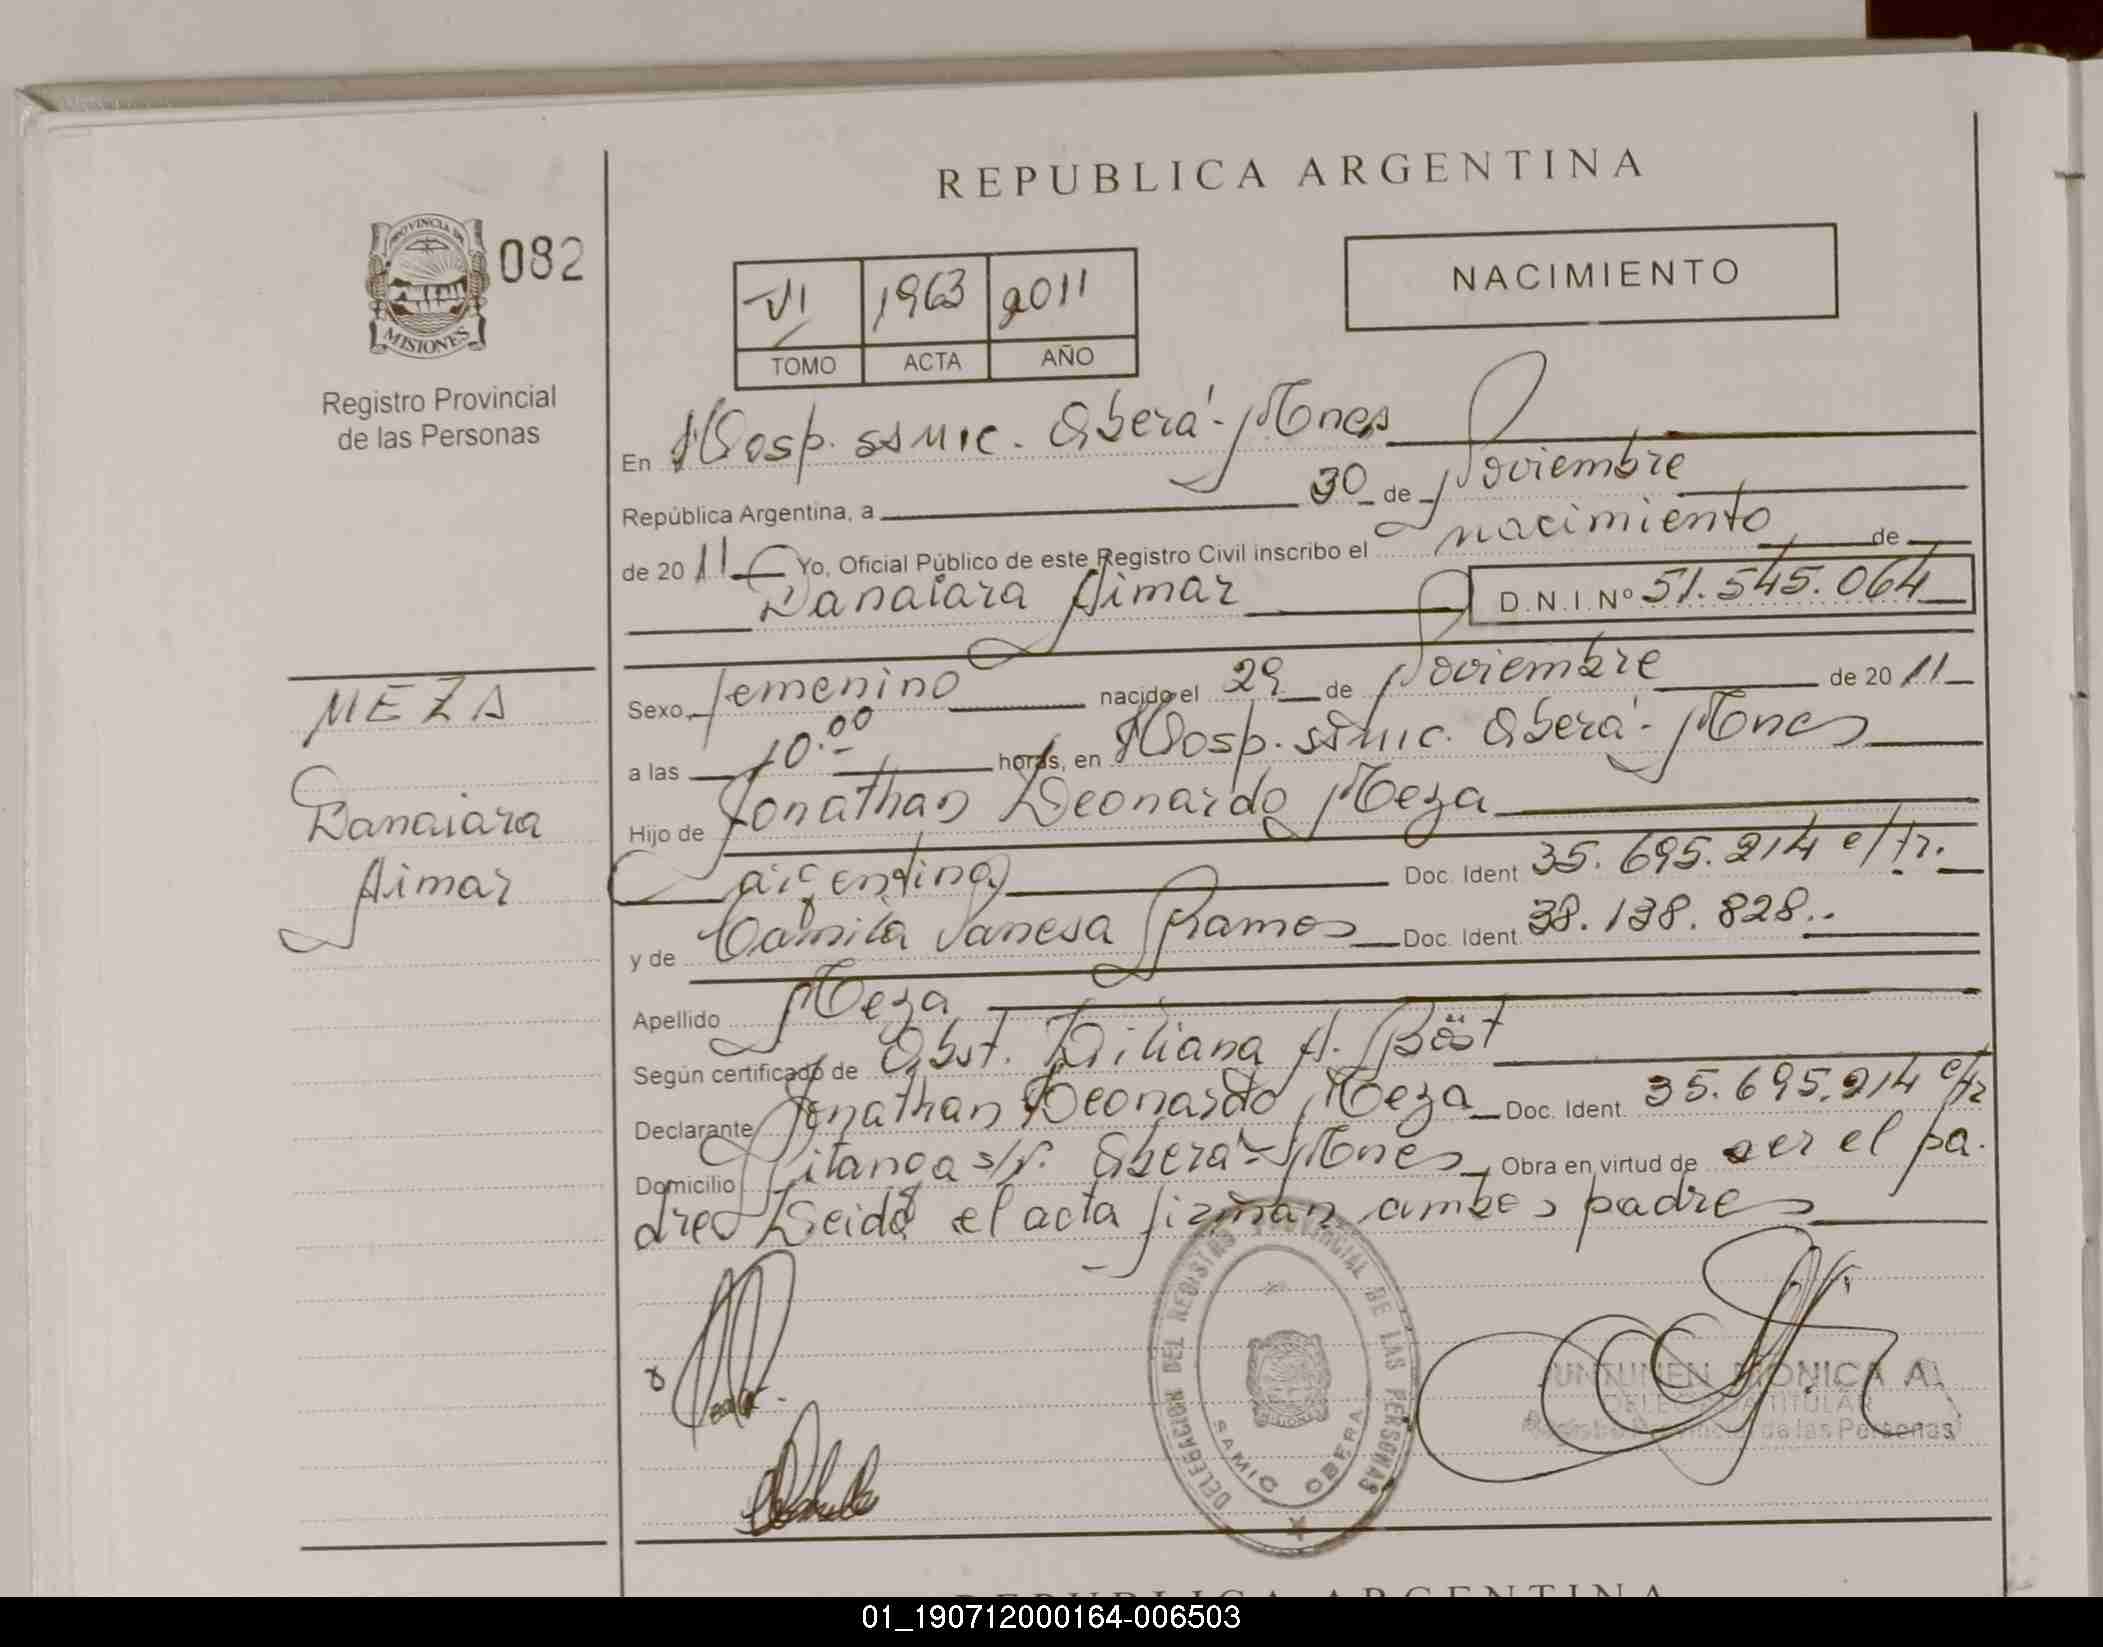 REPUBLICA ARGENTINA
PROVINCIA DE
MISIONES
082
Registro Provincial
de las Personas
NACIMIENTO
VI 1963 2011
TOMO ACTA AÑO
En Hosp. SAMIC. Oberá - Mnes
República Argentina, a 30 de Noviembre
de 2011 Yo, Oficial Público de este Registro Civil inscribo el nacimiento de
Danaiara Aimar D.N.I. Nº 51.545.064
MEZA
Danaiara
Aimar
Sexo femenino nacido el 29 de Noviembre de 2011
a las 10:00 horas, en Hosp. SAMIC. Oberá - Mnes
Hijo de Jonathan Leonardo Meza
argentina Doc. Ident 35.695.214 e/tr.
y de Camila Vanesa Ramos Doc. Ident. 38.138.828..
Apellido Meza
Según certificado de Obst. Liliana A. Böst
Declarante Jonathan Leonardo Meza Doc. Ident. 35.695.214 e/tr
Domicilio Pitanga s/n. Oberá - Mnes Obra en virtud de ser el pa-
dre Leida el acta firman ambos padres
DELEGACION DEL REGISTRO PROVINCIAL DE LAS PERSONAS
SAMIC OBERA
JUNTUNEN MONICA A.
DELEGADA TITULAR
Registro Provincial de las Personas
REPUBLICA ARGENTINA
01_190712000164-006503